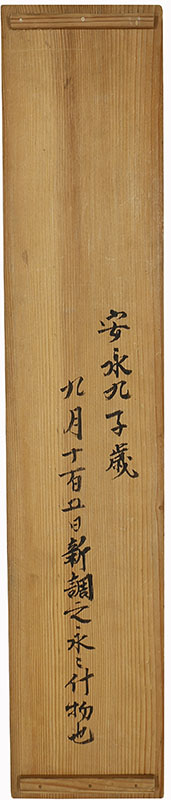 安永九子歳
九月十百五日新調之永々什物也